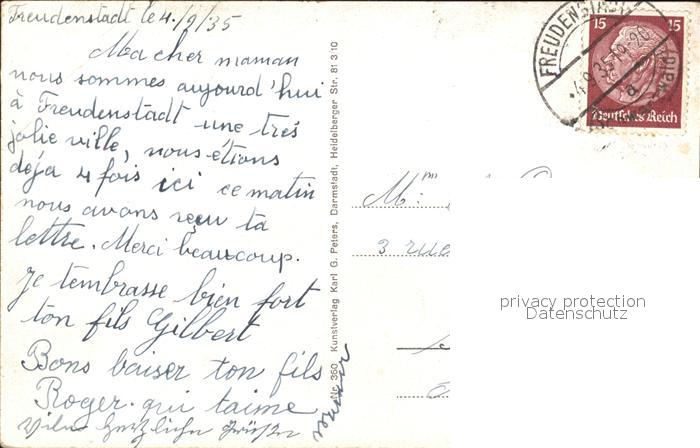 Freudenstadt le 4./9/35
Ma cher maman
nous sommes aujourd'hui
à Freudenstadt une très
jolie ville, nous étions
déja 4 fois ici ce matin
nous avons reçu ta
lettre. Merci beaucoup.
Je tembrasse bien fort
ton fils Gilbert
Bons baiser ton fils
Roger qui taime
Viele herzliche Grüße
Nr. 360 Kunstverlag Karl G. Peters, Darmstadt, Heidelberger Str. 81 3 10
FREUDENSTADT
4.9.35.19-20
a
15 15
Deutsches Reich
Mme
3 rue
privacy protection
Datenschutz